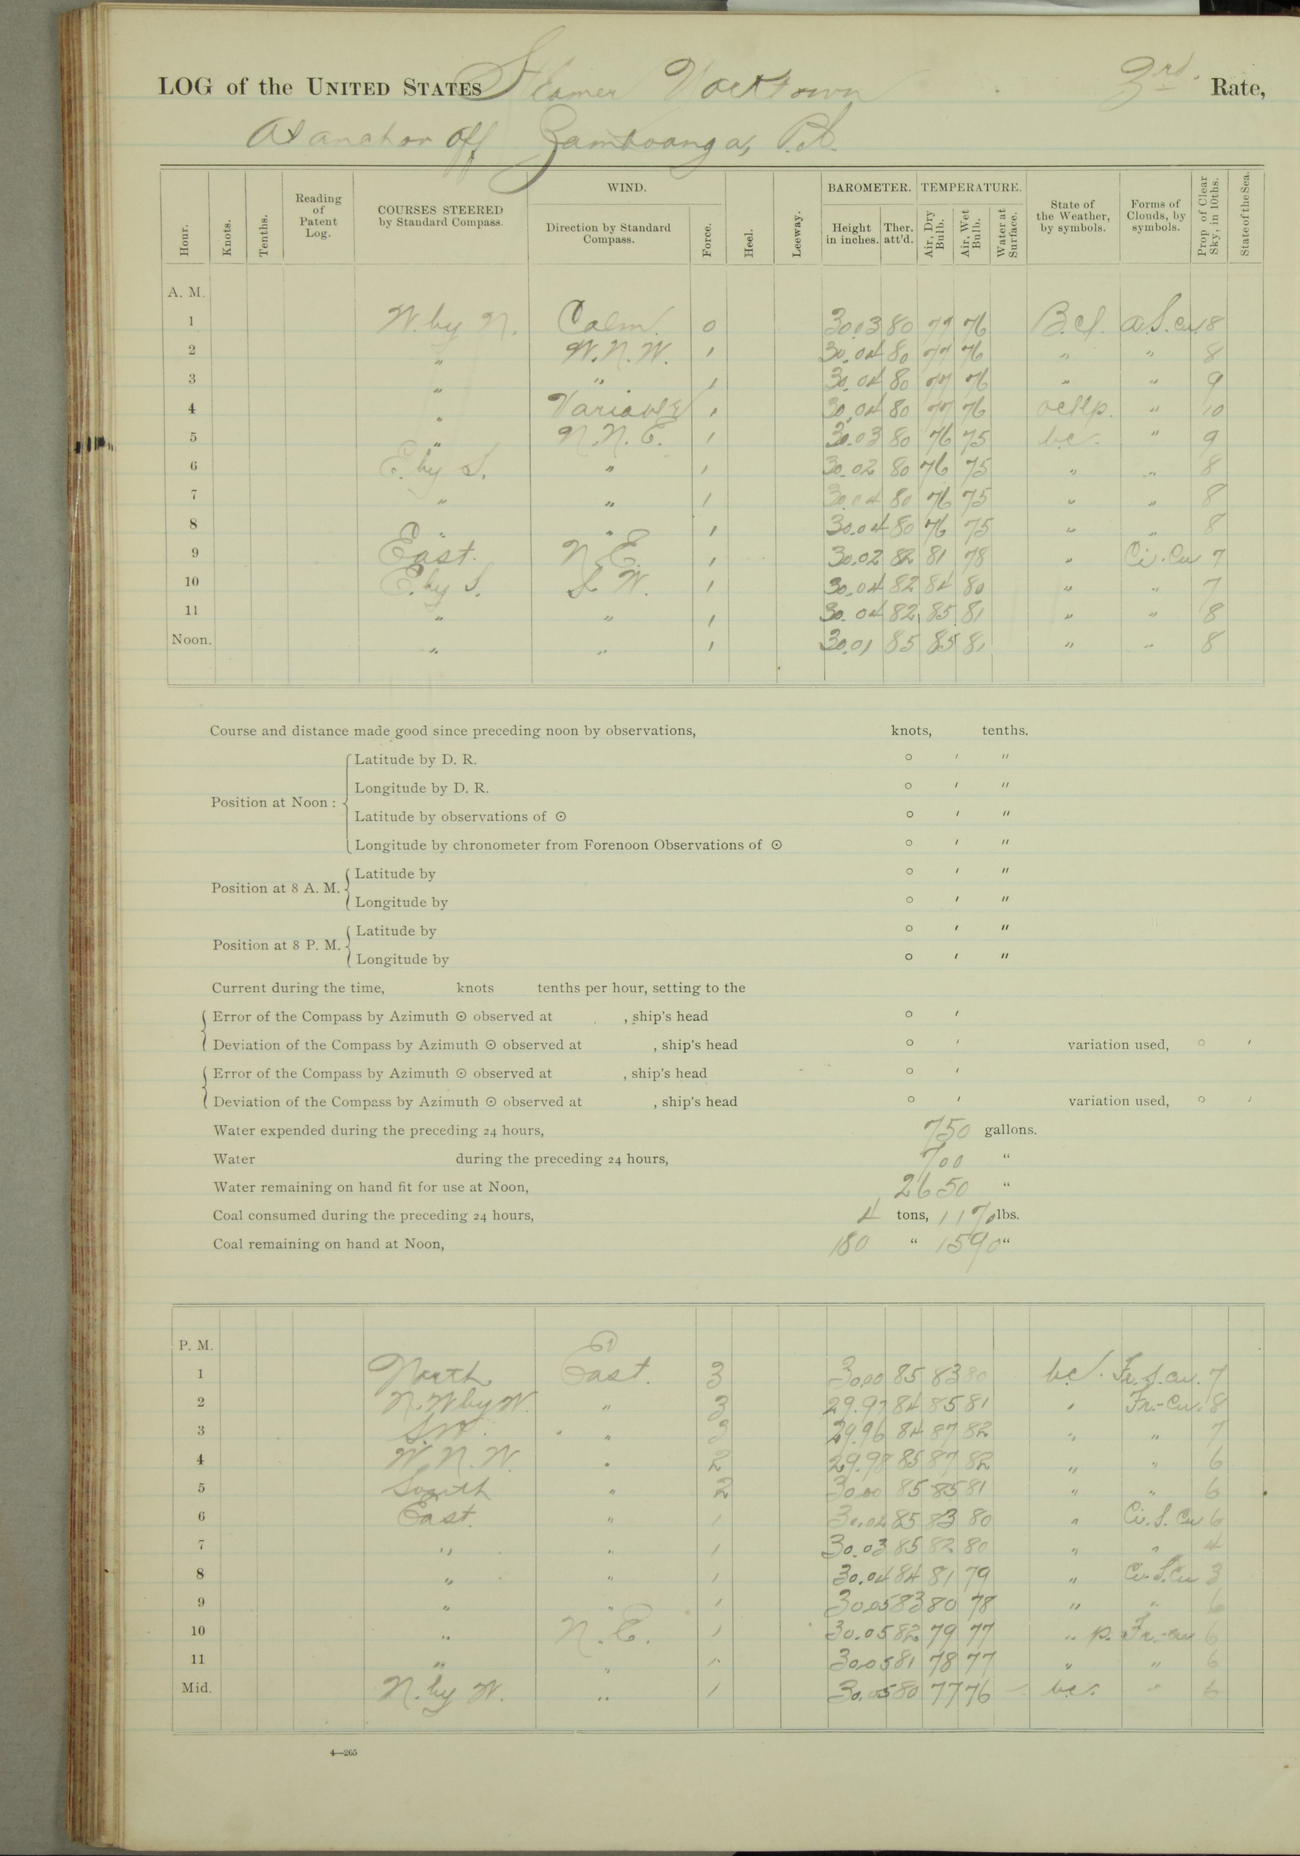 LOG of the UNITED STATES Steamer Yorktown 3rd. Rate,
At anchor off Zamboanga, P.I.
Hour. Knots. Tenths. Reading of Patent Log. COURSES STEERED by Standard Compass. WIND. Direction by Standard Compass. Force. Heel. Leeway. BAROMETER. Height in inches. Ther. att'd. TEMPERATURE. Air, Dry Bulb. Air, Wet Bulb. Water at Surface. State of the Weather, by symbols. Forms of Clouds, by symbols. Prop of Clear Sky, in 10ths. State of the Sea.
A. M.
1 W. by N. Calm. 0 30.03 80 77 76 B.cl. a.S.cu. 8
2 " W.N.W. 1 30.04 80 77 76 " " 8
3 " " 1 30.04 80 77 76 " " 9
4 " Variable 1 30.04 80 77 76 " 10
5 " N.N.E. 1 30.03 80 76 75 b.c. " 9
6 E. by S. " 1 30.02 80 76 75 " " 8
7 " " 1 30.04 80 76 75 " " 8
8 " " 1 30.04 80 76 75 " " 8
9 East. N.E. 1 30.02 82 81 78 " Ci.-Cu 7
10 E. by S. S.W. 1 30.04 82 84 80 " " 7
11 " " 1 30.04 82 85 81 " " 8
Noon. " " 1 30.01 85 85 81 " " 8
Course and distance made good since preceding noon by observations, knots, tenths.
Position at Noon: Latitude by D. R. ° ′ ″
Longitude by D. R. ° ′ ″
Latitude by observations of ⊙ ° ′ ″
Longitude by chronometer from Forenoon Observations of ⊙ ° ′ ″
Position at 8 A. M. Latitude by ° ′ ″
Longitude by ° ′ ″
Position at 8 P. M. Latitude by ° ′ ″
Longitude by ° ′ ″
Current during the time, knots tenths per hour, setting to the
Error of the Compass by Azimuth ⊙ observed at , ship's head ° ′
Deviation of the Compass by Azimuth ⊙ observed at , ship's head ° ′ variation used, ° ′
Error of the Compass by Azimuth ⊙ observed at , ship's head ° ′
Deviation of the Compass by Azimuth ⊙ observed at , ship's head ° ′ variation used, ° ′
Water expended during the preceding 24 hours, 750 gallons.
Water during the preceding 24 hours, 700 "
Water remaining on hand fit for use at Noon, 2650 "
Coal consumed during the preceding 24 hours, 4 tons, 1170 lbs.
Coal remaining on hand at Noon, 180 " 1590 "
P. M.
1 North East. 3 30.00 85 83 80 b.c. Fr.S.cu. 7
2 N.W by W. " 3 29.97 84 85 81 " Fr.-Cu. 8
3 S.W. " 3 29.96 84 87 82 " " 7
4 W.N.W. " 2 29.98 85 87 82 " " 6
5 South " 2 30.00 85 85 81 " " 6
6 East. " 1 30.02 85 83 80 " Ci.S.Cu 6
7 " " 1 30.03 85 82 80 " " 4
8 " " 1 30.04 84 81 79 " Ci-S.Cu 3
9 " " 1 30.05 83 80 78 " " 6
10 " N.E. 1 30.05 82 79 77 " p. Fr.-cu 6
11 " " " 30.05 81 78 77 " " 6
Mid. N. by W. " 1 30.05 80 77 76 b.c. " 6
4—265